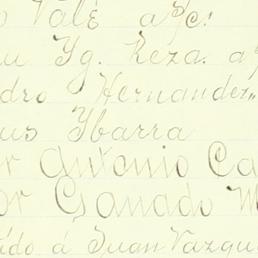 Valé a/c.
Yg. Reza. a
dro Hernandez„
us Ybarra
r Antonio Ca
or Ganado M
ido á Juan Vazqu